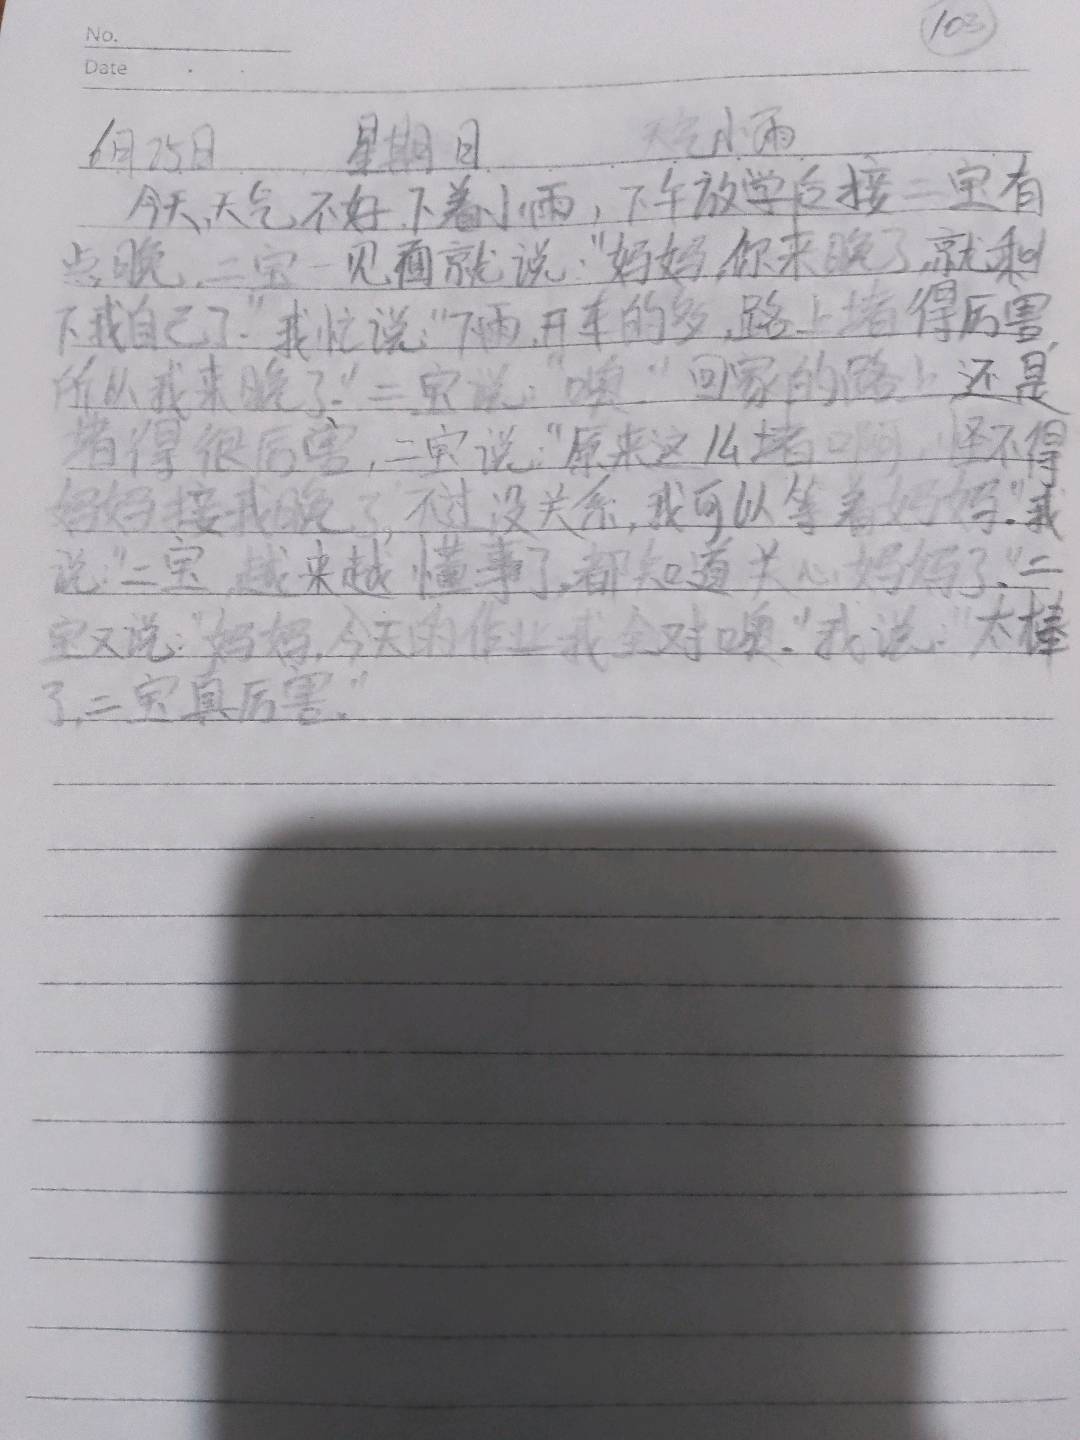 No.
103
Date
6月25日 星期日 天气小雨
今天,天气不好,下着小雨,下午放学后接二宝有
点晚,二宝一见面就说:"妈妈,你来晚了,就剩
下我自己了."我忙说:"下雨,开车的多,路上堵得厉害,
所以我来晚了."二宝说:"噢."回家的路上还是
堵得很厉害,二宝说:"原来这么堵啊,怪不得
妈妈接我晚了,不过没关系,我可以等着妈妈."我
说:"二宝,越来越懂事了,都知道关心妈妈了."二
宝又说:"妈妈,今天的作业我全对噢."我说:"太棒
了,二宝真厉害."